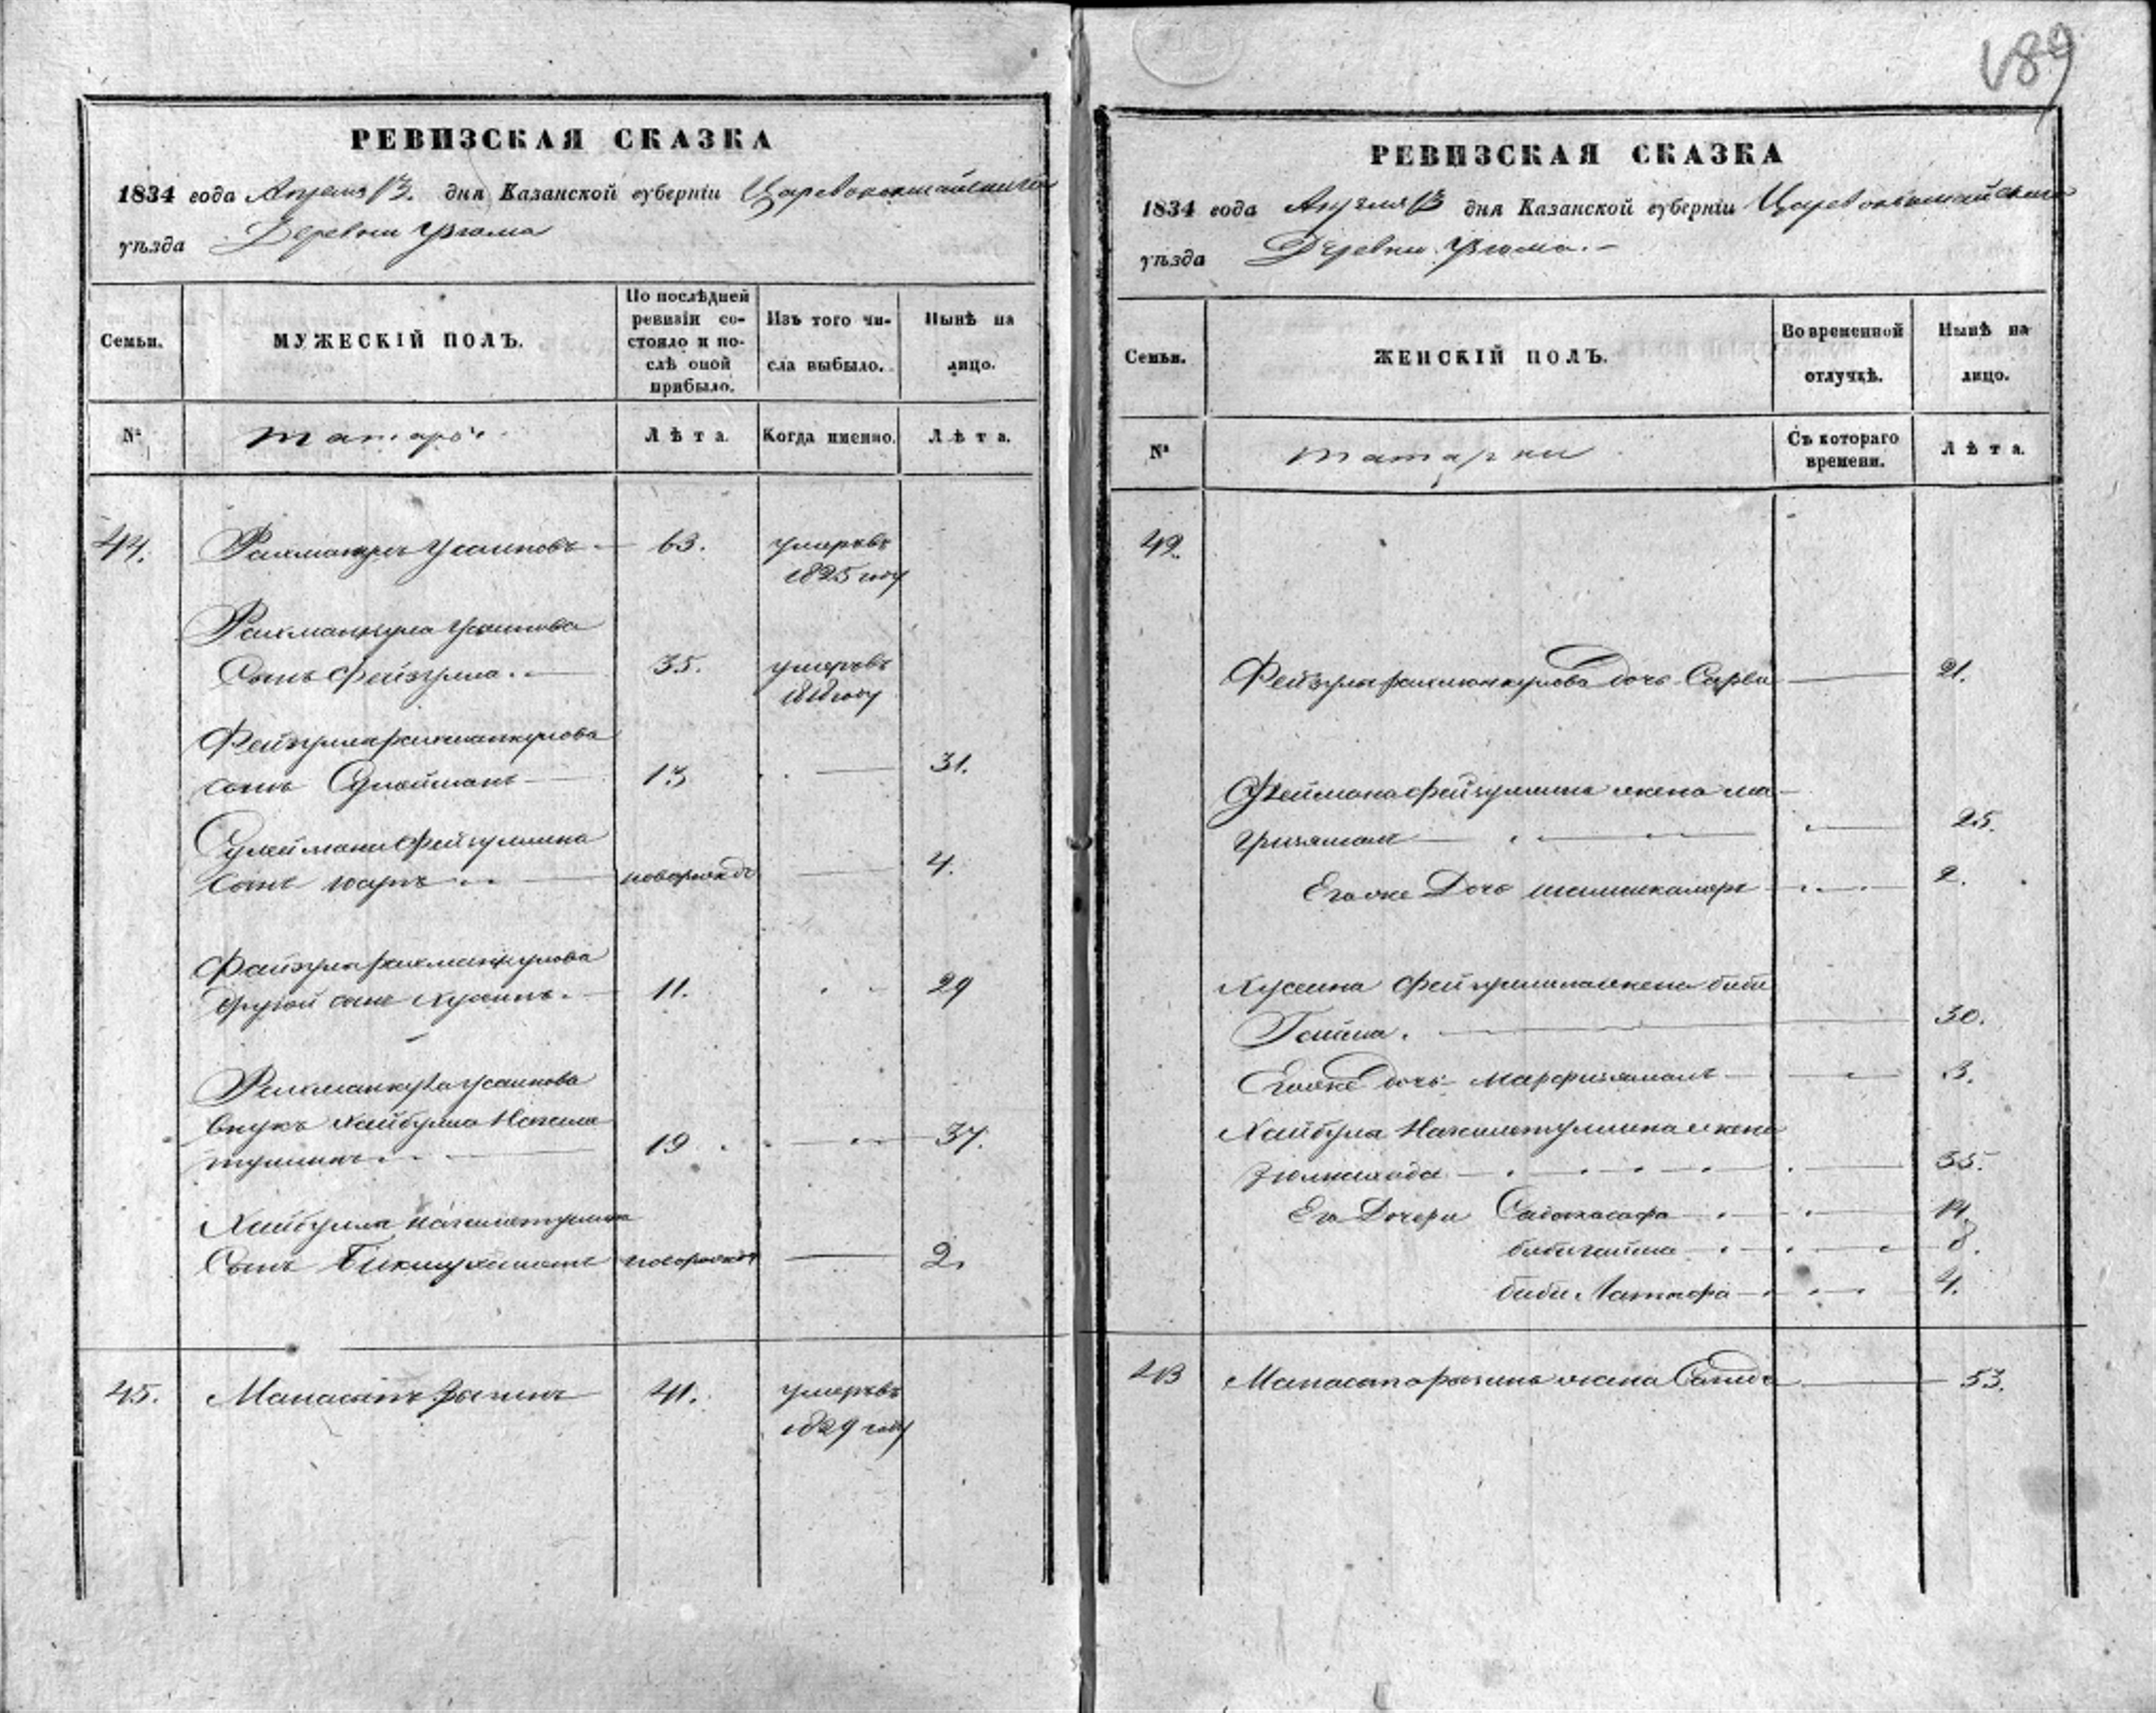 189
РЕВИЗСКАЯ СКАЗКА
1834 года Апреля 13. дня Казанской губерніи Царевококшайскаго
уѣзда Деревни Узюма
Семьи.
МУЖЕСКІЙ ПОЛЪ.
По послѣдней
ревизіи со-
стояло и по-
слѣ оной
прибыло.
Изъ того чи-
сла выбыло.
Нынѣ на
лицо.
№
татаръ
Лѣта.
Когда именно.
Лѣта.
44. Рахманкулъ Усаиновъ 63. умеръ въ
1825 году
Рахманкула Усаинова
Сынъ Фейзулла. 35. умеръ въ
году
Фейзулла Рахманкулова
сынъ Сулейманъ 13 31.
Сулеймана Фейзуллина
Сынъ новорожд 4.
Файзулы Рахманкулова
другой сынъ Хусаинъ. 11. 29
Рахманкула Усаинова
внукъ Хайбулла Нагаме
туллинъ 19 37.
Хайбуллы Нагаметуллина
Сынъ Бикмухаметъ новорожд 2.
45. Манасыпъ 41. умеръ въ
1829 году
РЕВИЗСКАЯ СКАЗКА
1834 года Апреля 13 дня Казанской губерніи Царевококшайскаго
уѣзда Деревни Узюма.
Семьи.
ЖЕНСКІЙ ПОЛЪ.
Во временной
отлучкѣ.
Нынѣ на
лицо.
№
татарки
Съ котораго
времени.
Лѣта.
42.
Фейзулы Рахманкулова Дочь Сарви 21.
Сулеймана Фейзуллина жена ма
25.
Его же Дочь шамшикамаръ 2.
Хусеина Фейзуллина жена биби
Гайша. 30.
Его же дочь 3.
Хайбулы Нагаметуллина жена
35.
Его Дочери 14.
бибигайша 8.
биби Латифа 4.
43 жена 53.